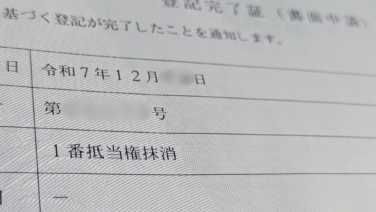 登記完了証（書面申請）
基づく登記が完了したことを通知します。
日 令和７年１２月 日
第 号
１番抵当権抹消
－